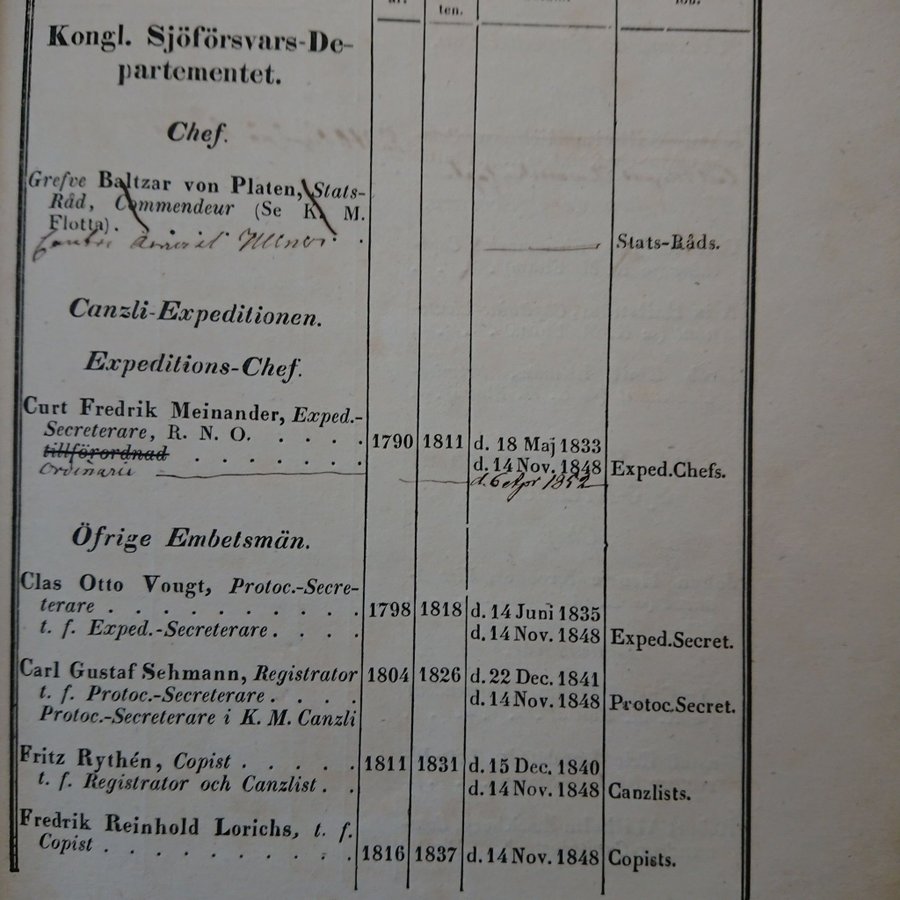 ten.
Kongl. Sjöförsvars-De-
partementet.
Chef.
Grefve Baltzar von Platen, Stats-
Råd, Commendeur (Se K. M.
Flotta). Stats-Råds.
Canzli-Expeditionen.
Expeditions-Chef.
Curt Fredrik Meinander, Exped.-
Secreterare, R. N. O. . . . . 1790 1811 d. 18 Maj 1833
tillförordnad . . . . . . d. 14 Nov. 1848 Exped.Chefs.
Ordinarie d. 6 Apr 1852
Öfrige Embetsmän.
Clas Otto Vougt, Protoc.-Secre-
terare . . . . . . . . . . 1798 1818 d. 14 Juni 1835
t. f. Exped.-Secreterare . . . . d. 14 Nov. 1848 Exped.Secret.
Carl Gustaf Sehmann, Registrator 1804 1826 d. 22 Dec. 1841
t. f. Protoc.-Secreterare . . . . d. 14 Nov. 1848 Protoc.Secret.
Protoc.-Secreterare i K. M. Canzli
Fritz Rythén, Copist . . . . . 1811 1831 d. 15 Dec. 1840
t. f. Registrator och Canzlist . . d. 14 Nov. 1848 Canzlists.
Fredrik Reinhold Lorichs, t. f.
Copist . . . . . . . . . . 1816 1837 d. 14 Nov. 1848 Copists.